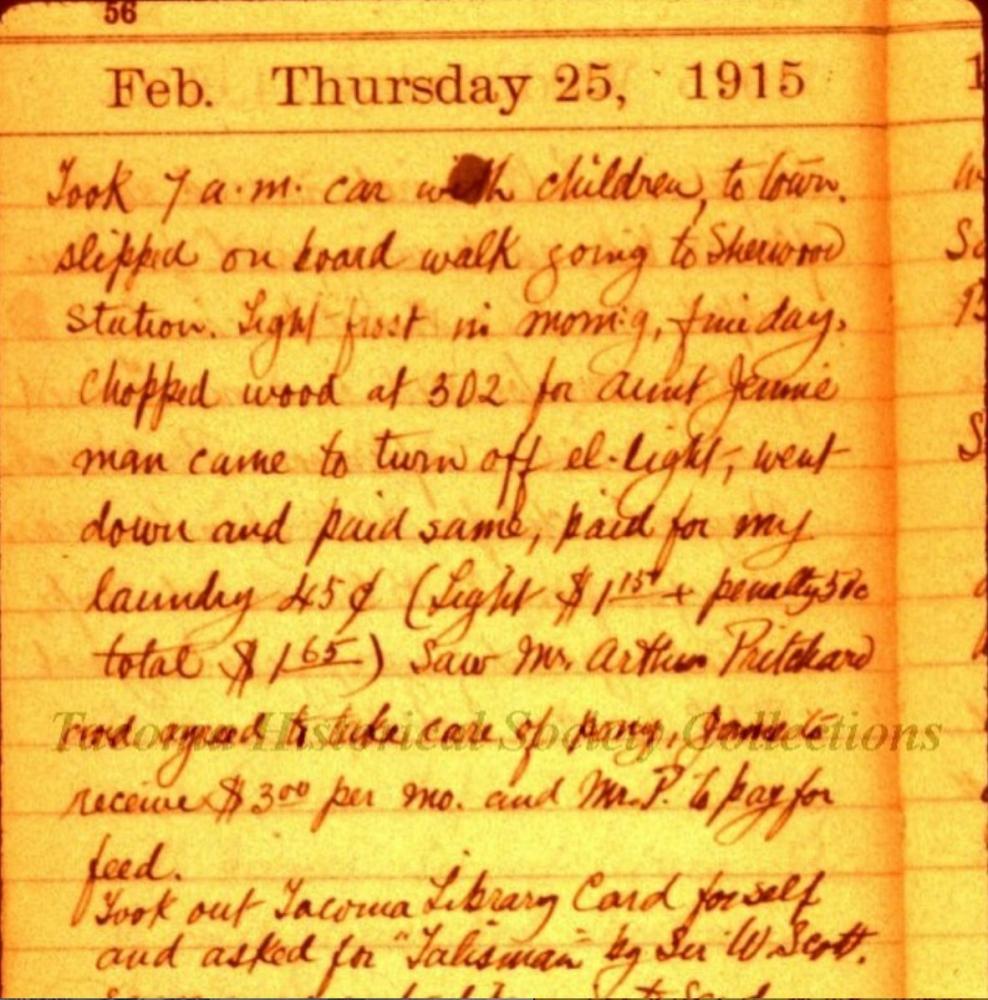 56
Feb. Thursday 25, 1915
Took 7 a.m. car with children, to town.
slipped on board walk going to Sherwood
station. Light frost in morn'g, fine day.
Chopped wood at 302 for Aunt Jennie
man came to turn off el-light, went
down and paid same, paid for my
laundry 45¢ (Light $1.15 + penalty 50c
total $1.65) Saw Mr. Arthur Pritchard
and agreed to take care of pony,
Tacoma Historical Society Collections
receive $3.00 per mo. and Mr. P. to pay for
feed.
Took out Tacoma Library Card for self
and asked for "Talisman" by Sir W Scott.